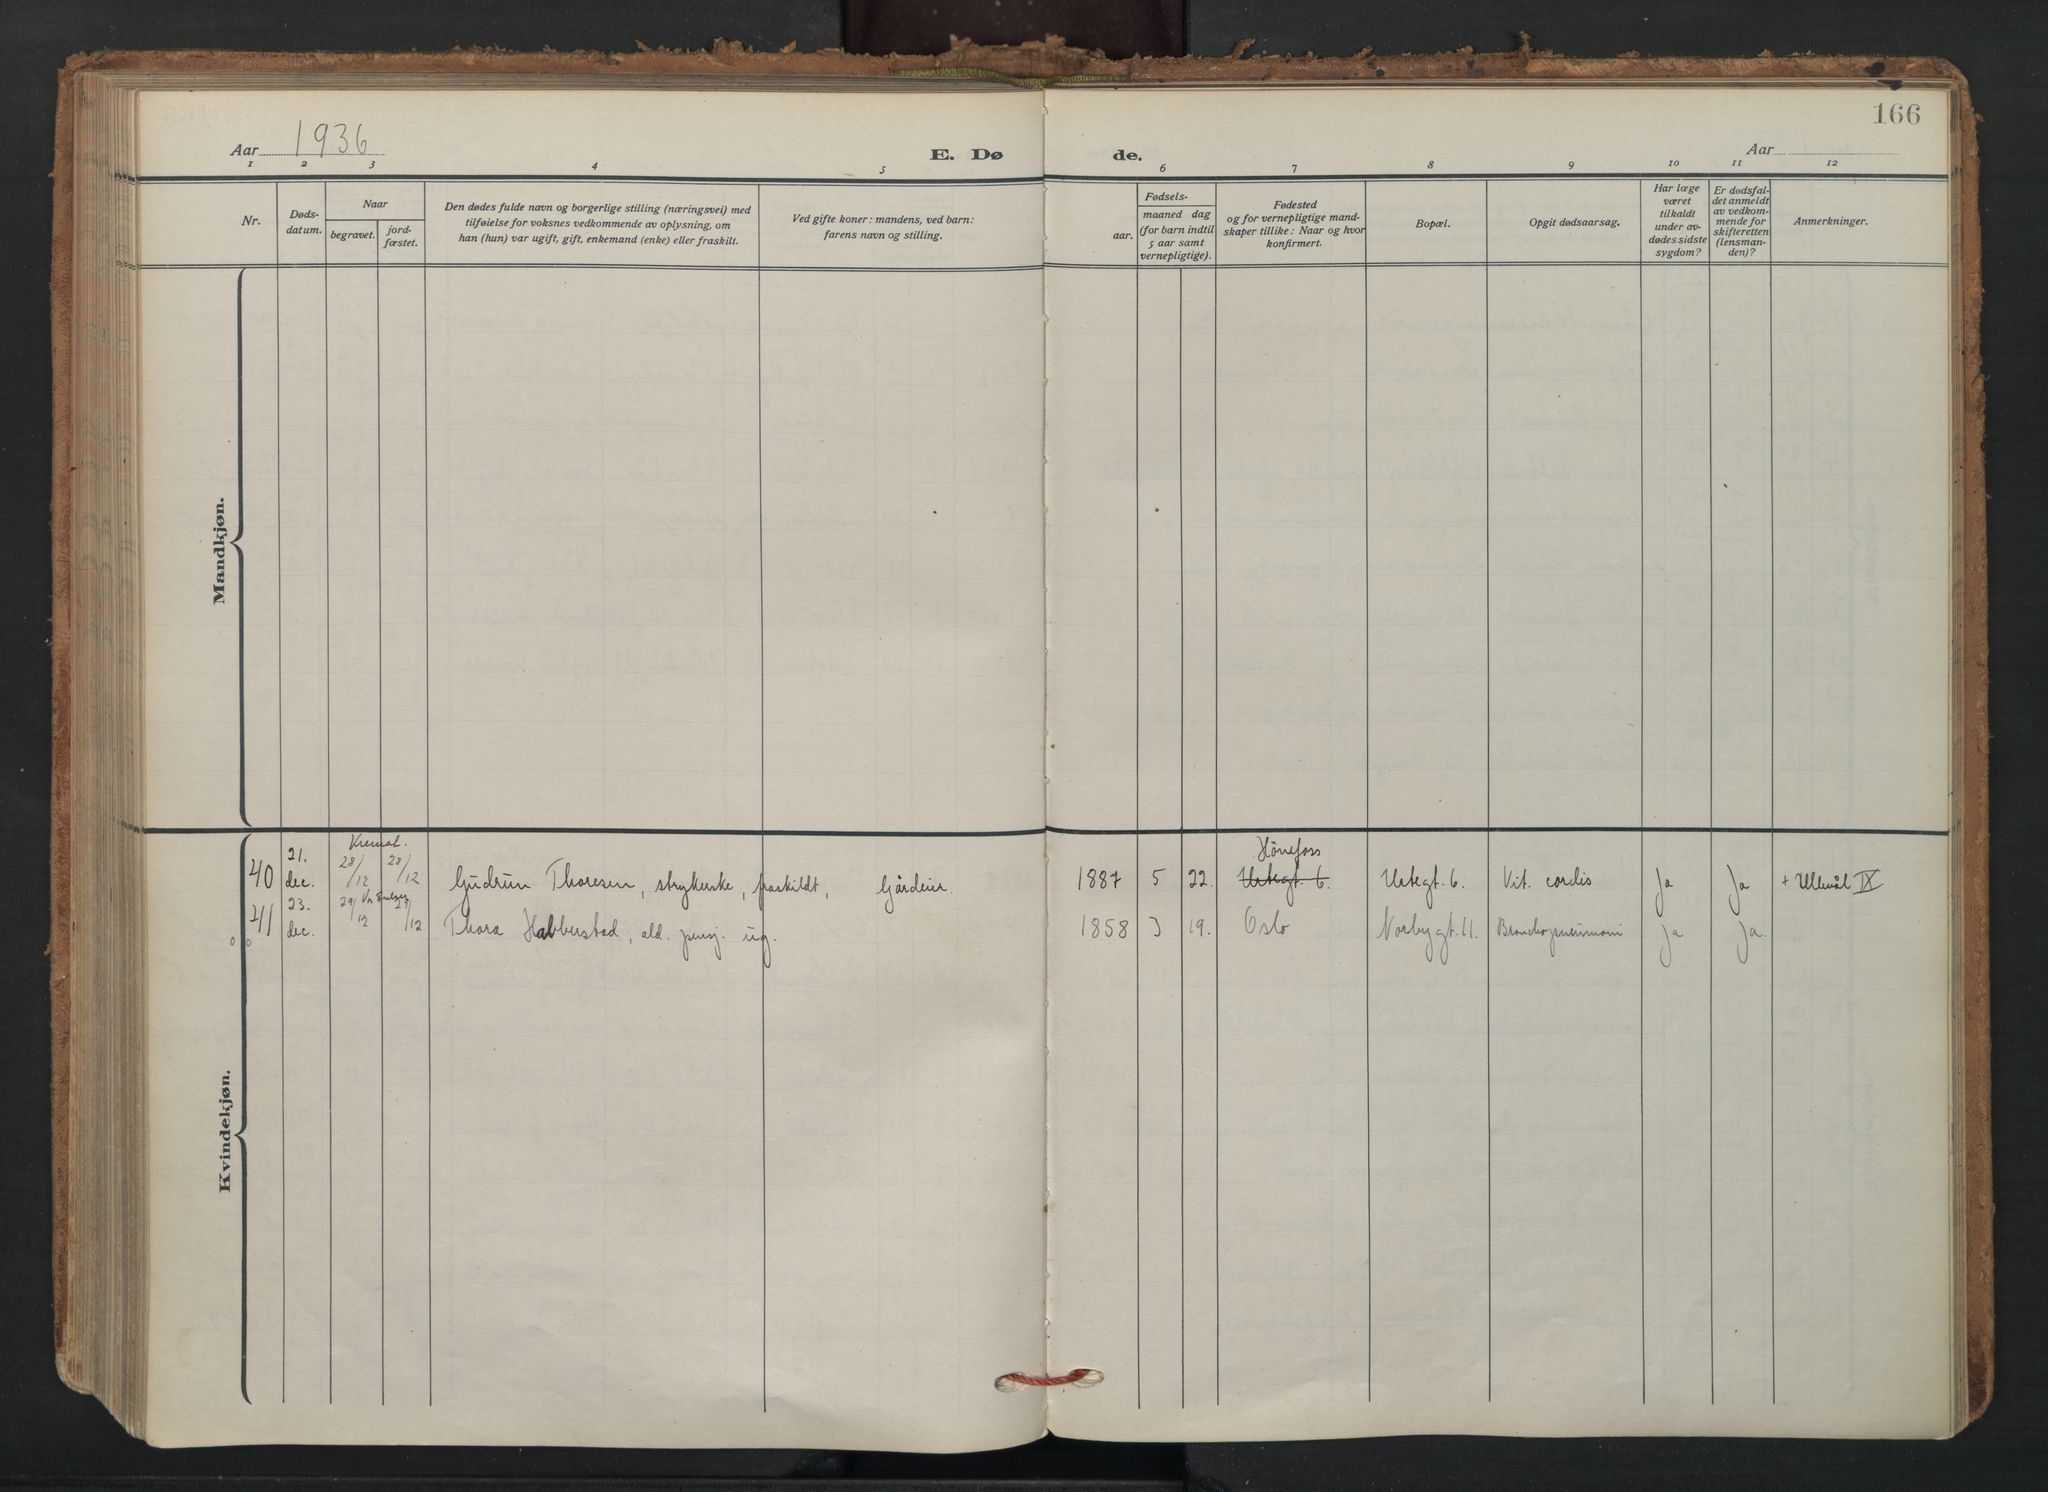 166
Aar 1936
E. Dø de.
Aar
1 2 3 4 5 6 7 8 9 10 11 12
Nr.
Døds-
datum.
Naar
begravet.
jord-
fæstet.
Den dødes fulde navn og borgerlige stilling (næringsvei) med
tilføielse for voksnes vedkommende av oplysning, om
han (hun) var ugift, gift, enkemand (enke) eller fraskilt.
Ved gifte koner: mandens, ved barn:
farens navn og stilling.
Fødsels-
aar.
maaned dag
(for barn indtil
5 aar samt
vernepligtige).
Fødested
og for vernepligtige mand-
skaper tillike: Naar og hvor
konfirmert.
Bopæl.
Opgit dødsaarsag.
Har læge
været
tilkaldt
under av-
dødes sidste
sygdom?
Er dødsfal-
det anmeldt
av vedkom-
mende for
skifteretten
(lensman-
den)?
Anmerkninger.
Mandkjøn.
Kvindekjøn.
Kremat.
Hönefoss
40 21. dec. 28/12 28/12 Gudrun Thoresen, strykerske, fraskildt, Gårdeier. 1887 5 22. Urtegt. 6. Urtegt. 6. Vit. cordis Ja Ja + Ullevål IX
41 23. dec. 29/12 29/12 Thora Habberstad, ald. pensj. ug. 1858 3 19. Oslo Norbygt. 11. Bronchopneumoni Ja Ja.